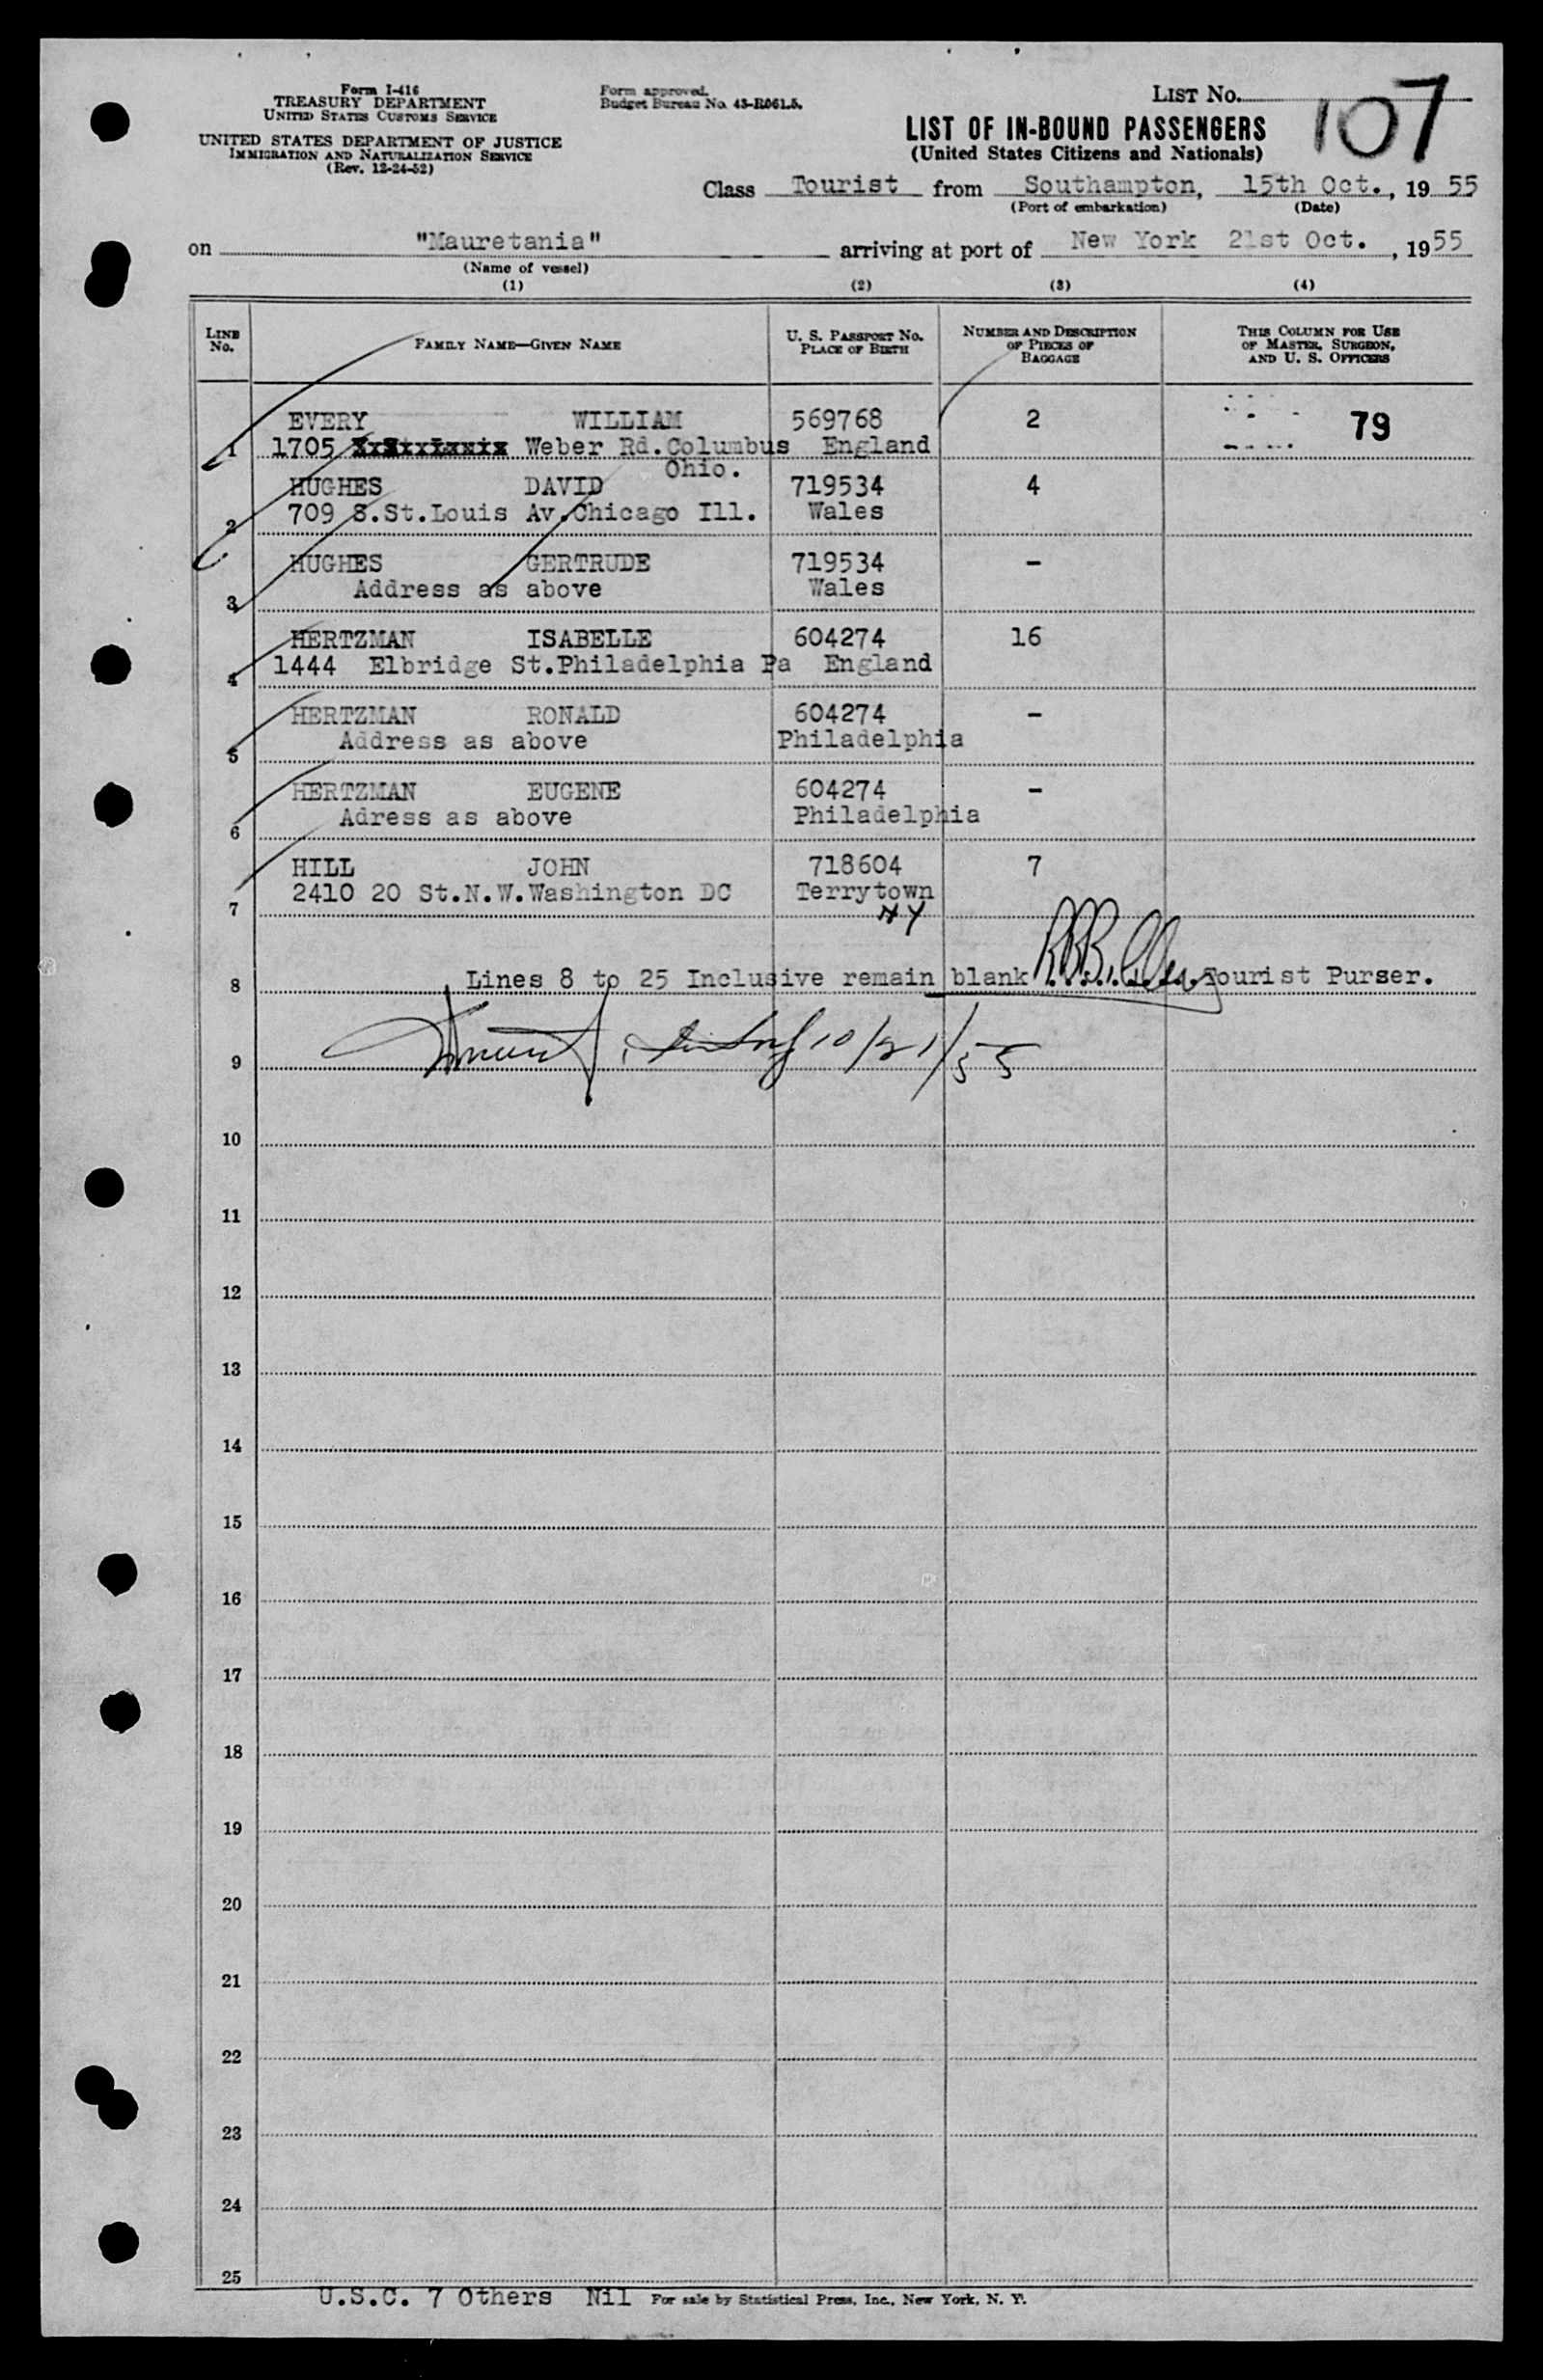 Form I-416
TREASURY DEPARTMENT
UNITED STATES CUSTOMS SERVICE
UNITED STATES DEPARTMENT OF JUSTICE
IMMIGRATION AND NATURALIZATION SERVICE
(Rev. 12-24-52)
Form approved.
Budget Bureau No. 43-R061.5.
LIST No. 107
LIST OF IN-BOUND PASSENGERS
(United States Citizens and Nationals)
Class Tourist from Southampton, 15th Oct., 19 55
(Port of embarkation) (Date)
on "Mauretania" arriving at port of New York 21st Oct. , 1955
(Name of vessel)
(1) (2) (3) (4)
LINE No. FAMILY NAME—GIVEN NAME U. S. PASSPORT No. PLACE OF BIRTH NUMBER AND DESCRIPTION OF PIECES OF BAGGAGE THIS COLUMN FOR USE OF MASTER, SURGEON, AND U. S. OFFICERS
EVERY WILLIAM 569768 2 79
1 1705 Weber Rd.Columbus England
Ohio.
HUGHES DAVID 719534 4
2 709 S.St.Louis Av.Chicago Ill. Wales
HUGHES GERTRUDE 719534 -
3 Address as above Wales
HERTZMAN ISABELLE 604274 16
4 1444 Elbridge St.Philadelphia Pa England
HERTZMAN RONALD 604274 -
5 Address as above Philadelphia
HERTZMAN EUGENE 604274 -
6 Adress as above Philadelphia
HILL JOHN 718604 7
2410 20 St.N.W.Washington DC Terrytown
7 NY
8 Lines 8 to 25 Inclusive remain blank Tourist Purser.
9 10/21/55
10
11
12
13
14
15
16
17
18
19
20
21
22
23
24
25
U.S.C. 7 Others Nil For sale by Statistical Press, Inc., New York, N. Y.